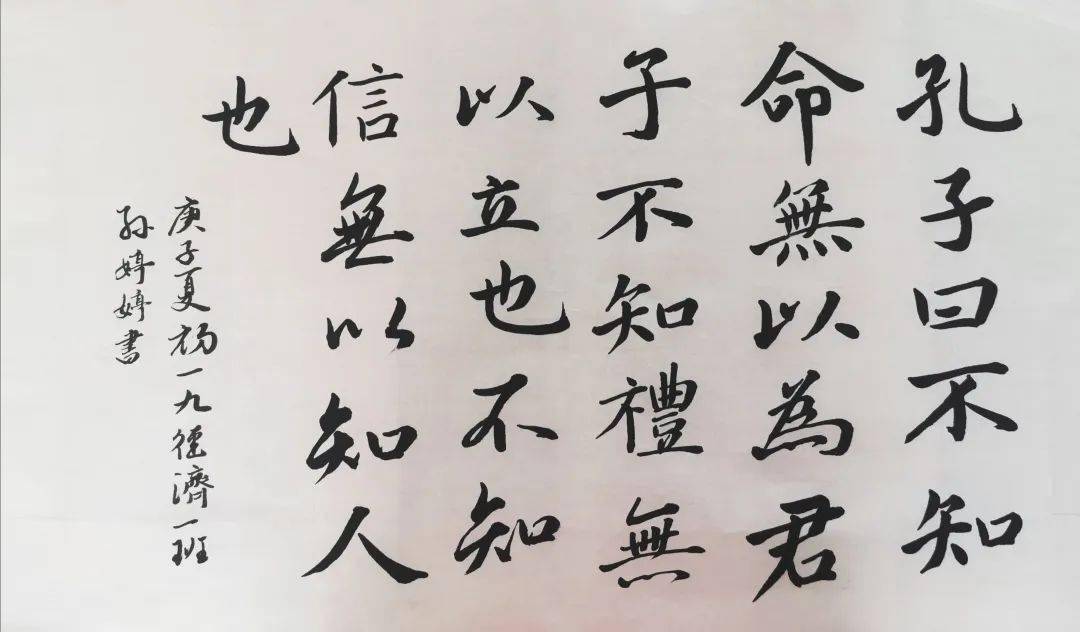 孔子曰不知
命無以為君
子不知禮無
以立也不知
信無以知人
也
庚子夏 一九經濟一班
孙婷婷書